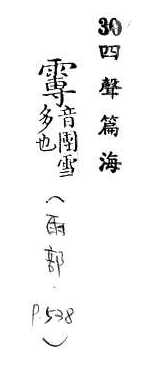 30 四聲篇海
音團雪
多也
(雨部 P.538)